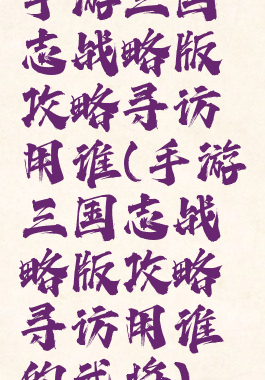 手游三国
志战略版
攻略寻访
用谁(手游
三国志战
略版攻略
寻访用谁
的武将)